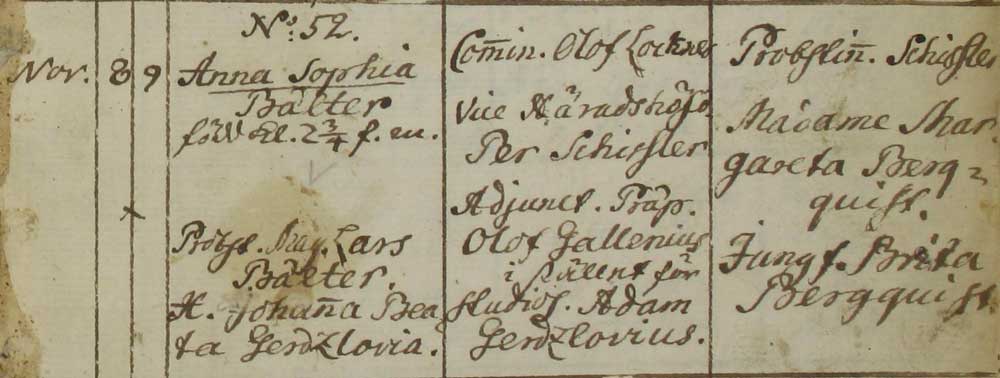 No: 52.
Nov. 8 9 Anna Sophia
Bälter
född kl. 2 3/4 f. m.
Probst. Mag. Lars
Bälter.
H. Johan̄a Bea
ta Gerdzlovia.
Com̄in. Olof Lockner
Vice Häradshöfd.
Per Schissler
Adjunct. Präp.
Olof Gallenius
i stället för
studios. Adam
Gerdzlovius.
Probstin̄. Schissler
Madame Mar
gareta Berg=
quist.
Jungf. Brita
Bergquist.